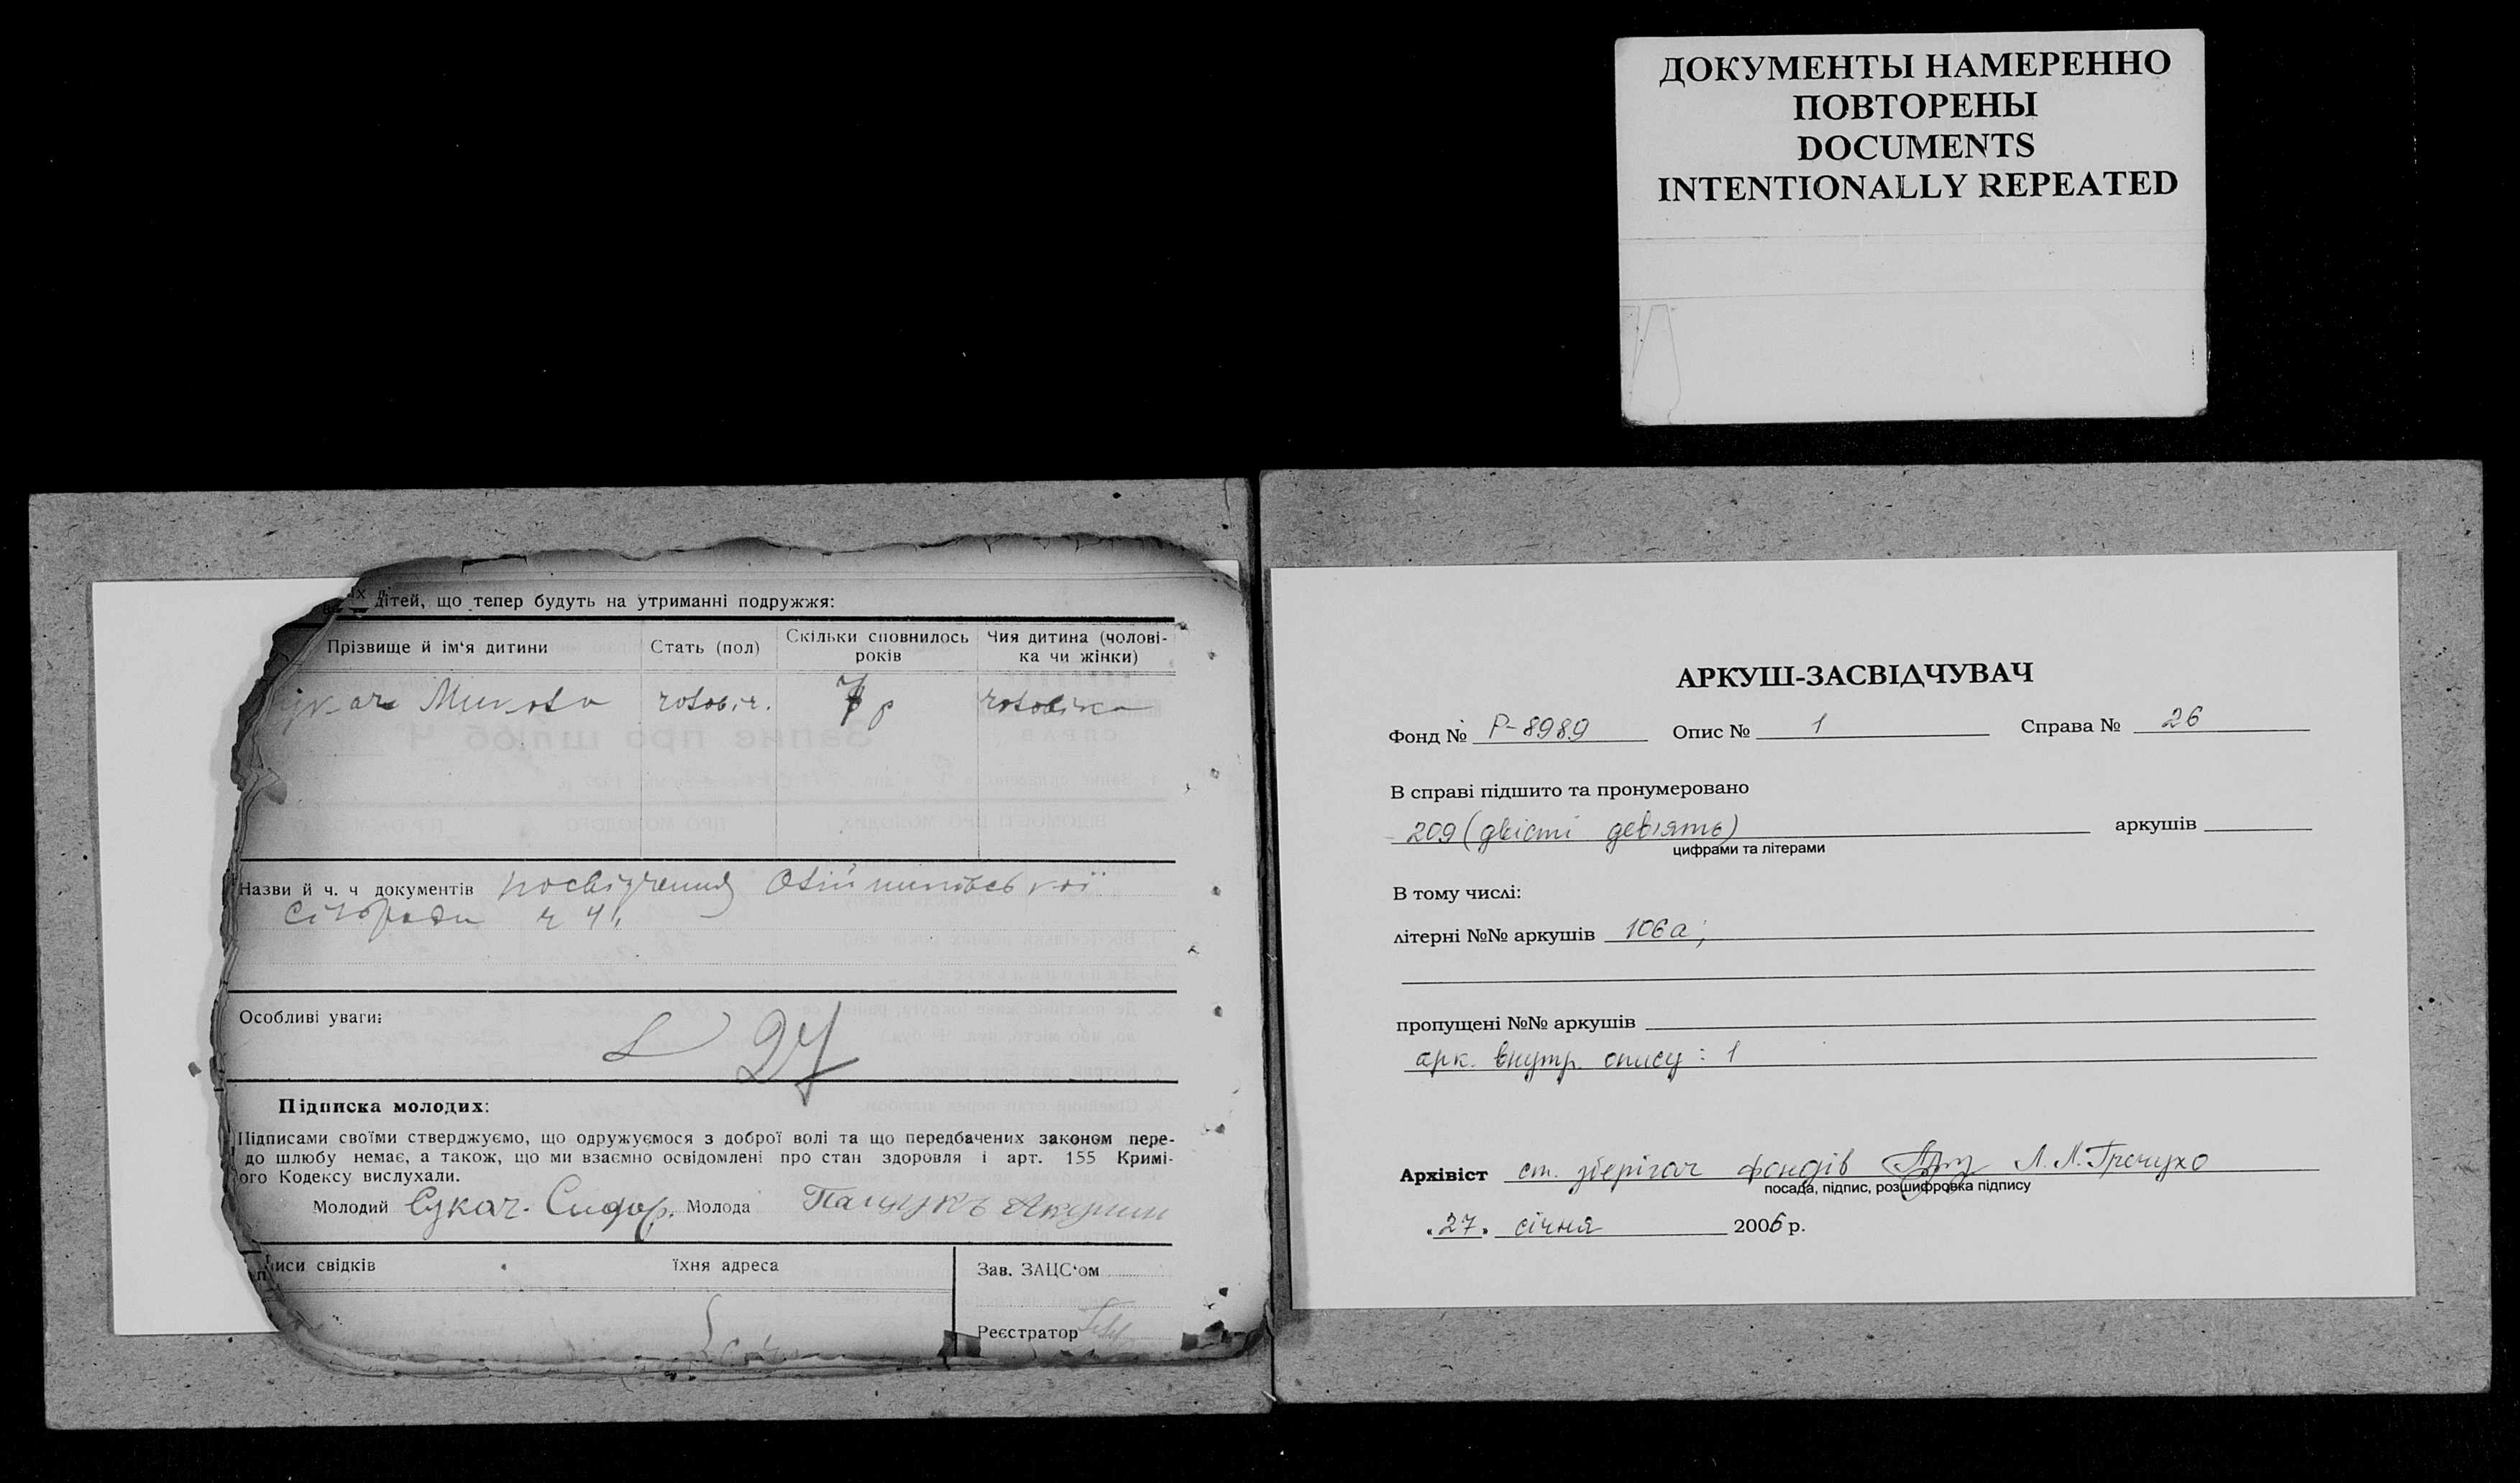 ДОКУМЕНТЫ НАМЕРЕННО
ПОВТОРЕНЫ
DOCUMENTS
INTENTIONALLY REPEATED
їх дітей, що тепер будуть на утриманні подружжя:
Прізвище й ім'я дитини
Стать (пол)
Скільки сповнилось років
Чия дитина (чолові-
ка чи жінки)
Микола чоловіч. 7 р чоловіка
Назви й ч. ч документів посвідчення
сільради ч 41
Особливі уваги:
27
Підписка молодих:
Підписами своїми стверджуємо, що одружуємося з доброї волі та що передбачених законом пере-
до шлюбу немає, а також, що ми взаємно освідомлені про стан здоровля і арт. 155 Кримі-
ого Кодексу вислухали.
Молодий Сукач. Сидор. Молода Пащукъ
иси свідків
їхня адреса
Зав. ЗАЦС'ом
Реєстратор
АРКУШ-ЗАСВІДЧУВАЧ
Фонд № Р-8989 Опис № 1 Справа № 26
В справі підшито та пронумеровано
209 (двісті дев'ять) аркушів
цифрами та літерами
В тому числі:
літерні №№ аркушів 106а;
пропущені №№ аркушів
арк. внутр. опису: 1
Архівіст ст. зберігач фондів Л. Л.
посада, підпис, розшифровка підпису
"27" січня 2006 р.